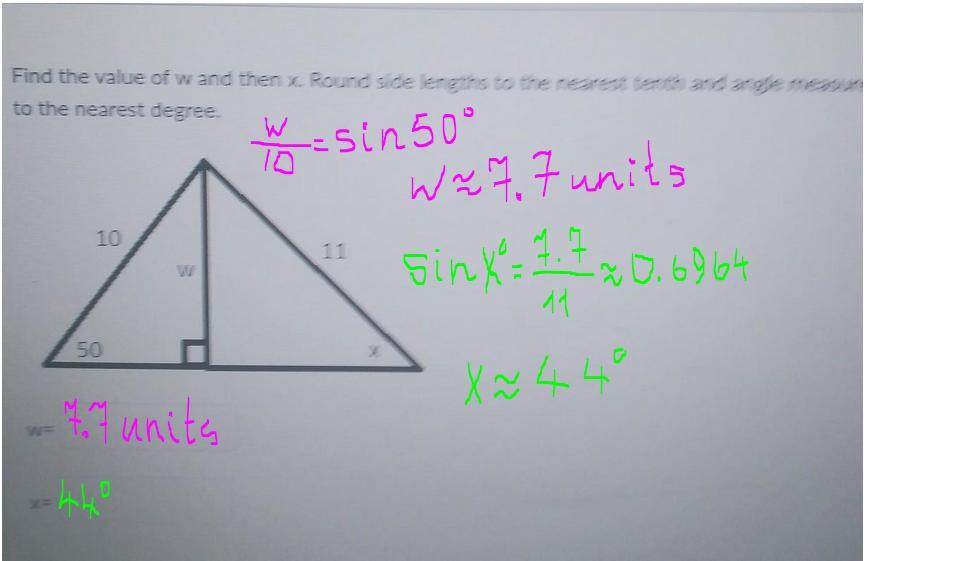 Find the value of w and then x. Round side lengths to the nearest tenth and angle measur
to the nearest degree.
w/10 = sin 50°
w ≈ 7.7 units
10
w
11
50
x
sin x° = 7.7/11 ≈ 0.6964
x ≈ 44°
w= 7.7 units
x= 44°